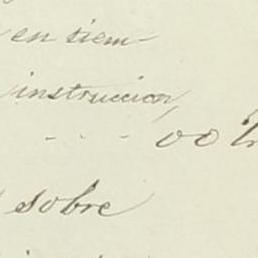 en siem-
instruccion,
- - - 00
sobre